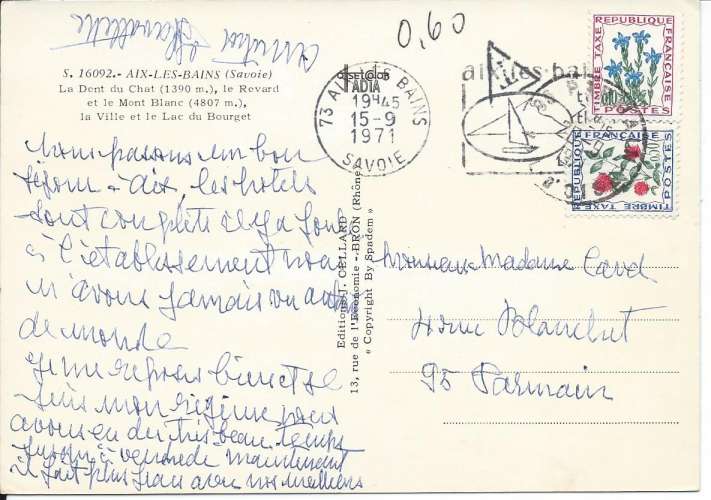 amitiés
0,60
S. 16092.- AIX-LES-BAINS (Savoie)
La Dent du Chat (1390 m.), le Revard
et le Mont Blanc (4807 m.),
la Ville et le Lac du Bourget
nous passons un bon
séjour à aix, les hotels
sont complets il y a foule
à l'établissement nous
n avons jamais vu autan
de monde
je me repose bien et je
suis mon régime nous
avons eu du très beau temps
jusqu'à vendredi maintenant
il fait plus frais avec nos meilleurs
Editions J. CELLARD
13, rue de l'Economie - BRON (Rhône)
« Copyright By Spadem »
73 AIX LES BAINS
19H45
15-9
1971
SAVOIE
aix les bai
T
REPUBLIQUE FRANCAISE
TIMBRE TAXE
POSTES
REPUBLIQUE FRANCAISE
TIMBRE TAXE
POSTES
Monsieur Madame
95 Parmain